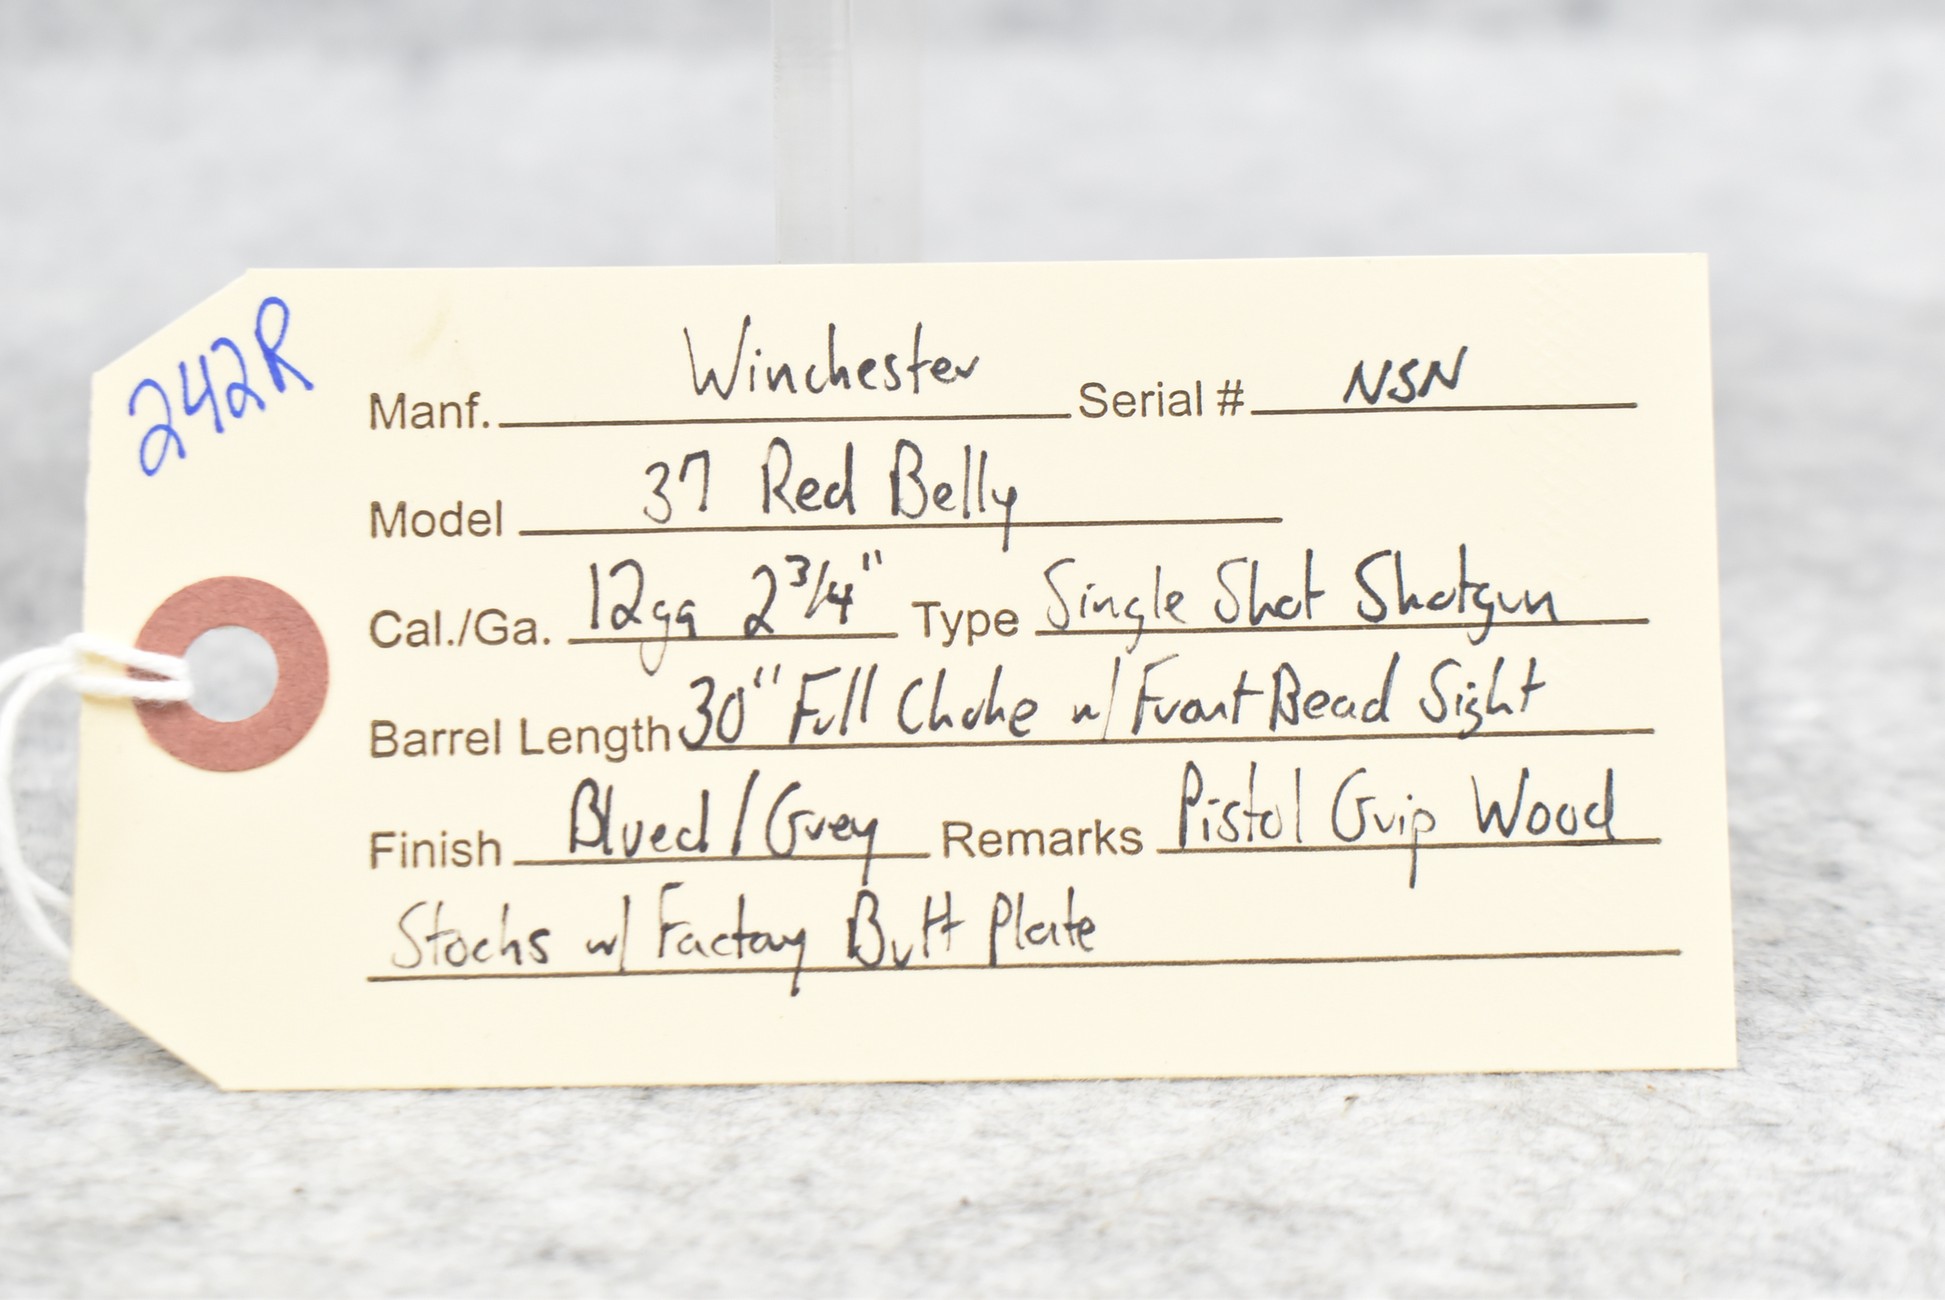 242R
Manf. Winchester Serial # NSN
Model 37 Red Belly
Cal./Ga. 12ga 2 3/4" Type Single Shot Shotgun
Barrel Length 30" Full Choke w/ Front Bead Sight
Finish Blued/Grey Remarks Pistol Grip Wood
Stocks w/ Factory Butt Plate